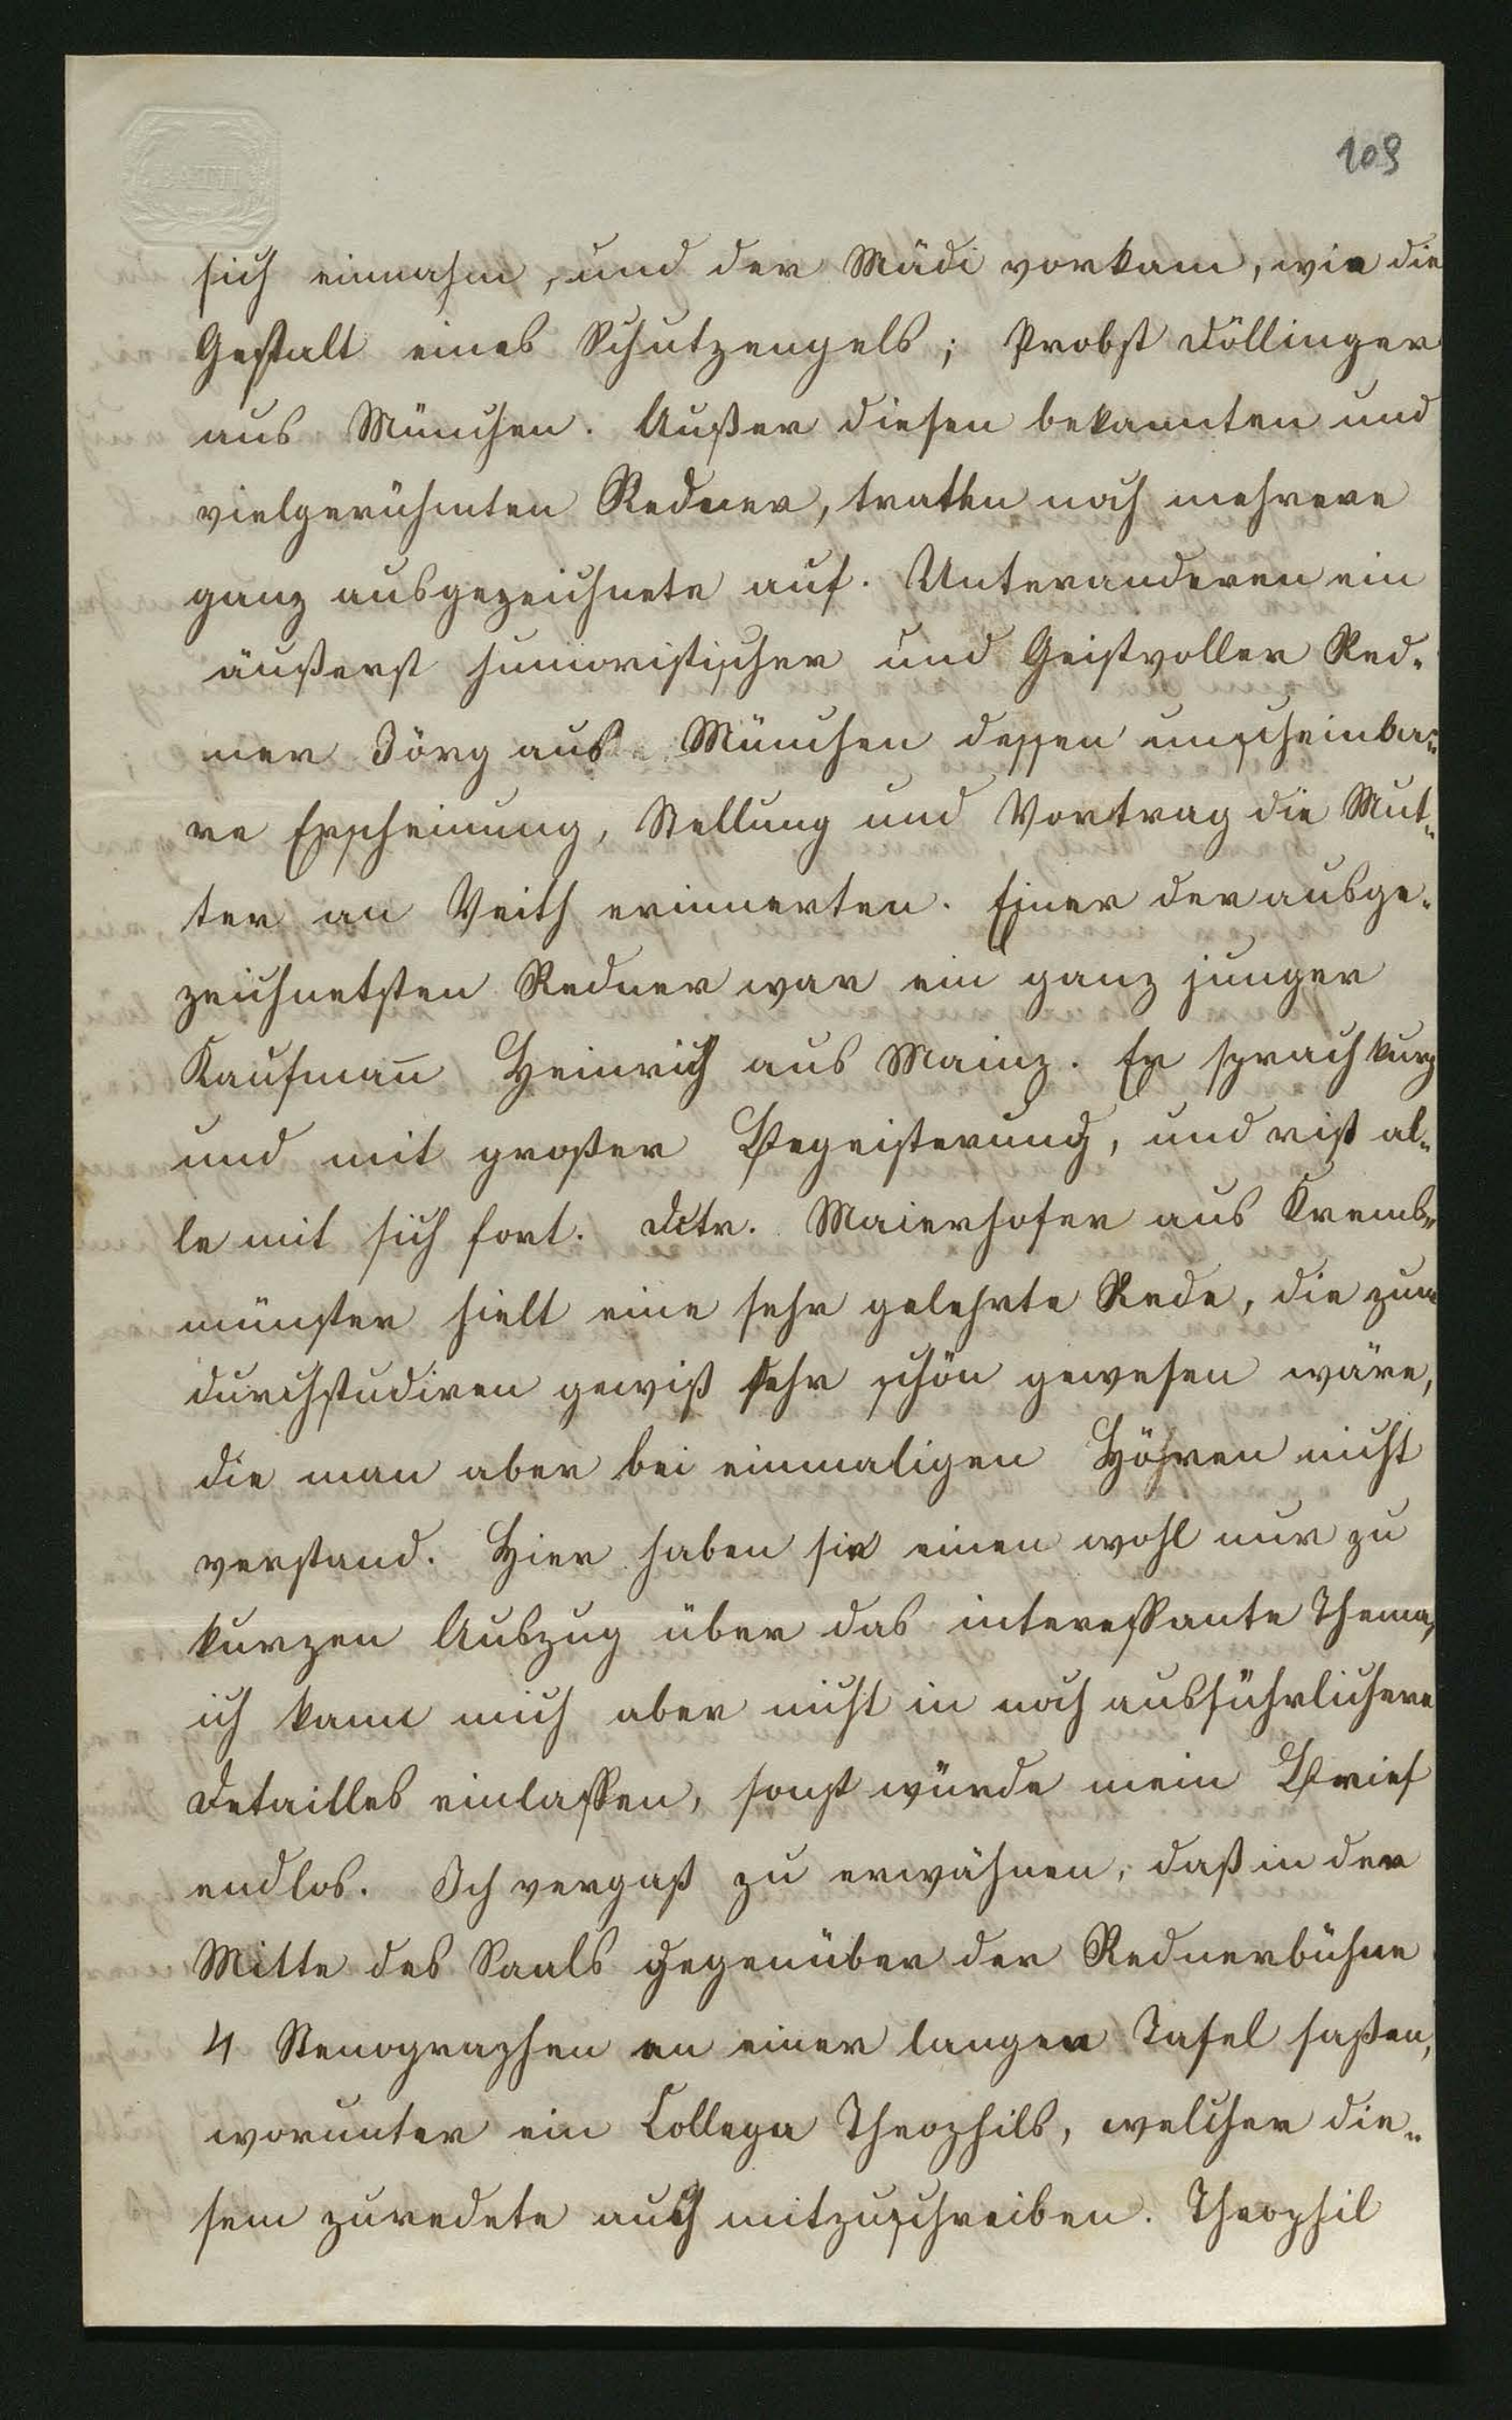 BATH
109
sich einnahm, und der Mädi vorkam, wie die
Gestalt eines Schutzengels; Probst Döllinger
aus München. Außer diesen bekannten und
vielgerühmten Redner, trathen noch mehrere
ganz ausgezeichnete auf. Unteranderen ein
äußerst humoristischer und Geistvoller Red-
ner Jörg aus München dessen unscheinba-
re Erscheinung, Stellung und Vortrag die Mut-
ter an Veith erinnerten. Einer der ausge-
zeichnetsten Redner war ein ganz junger
Kaufman̅ Heinrich aus Mainz. Er sprach kurz
und mit großer Begeisterung, und riß al-
le mit sich fort. Dctr. Maierhofer aus Krems-
münster hielt eine sehr gelehrte Rede, die zum
durchstudiren gewiß sehr schön gewesen wäre,
die man aber bei einmaligen Höhren nicht
verstand. Hier haben sie einen wohl nur zu
kurzen Auszug über das interessante Thema,
ich kann mich aber nicht in noch ausführlichere
Detailles einlassen, sonst würde mein Brief
endlos. Ich vergaß zu erwähnen, daß in der
Mitte des Saals gegenüber der Rednerbühne
4 Stenographen an einer langen Tafel saßen,
worunter ein Collega Theophils, welcher die-
sem zuredete auch mitzuschreiben. Theophil